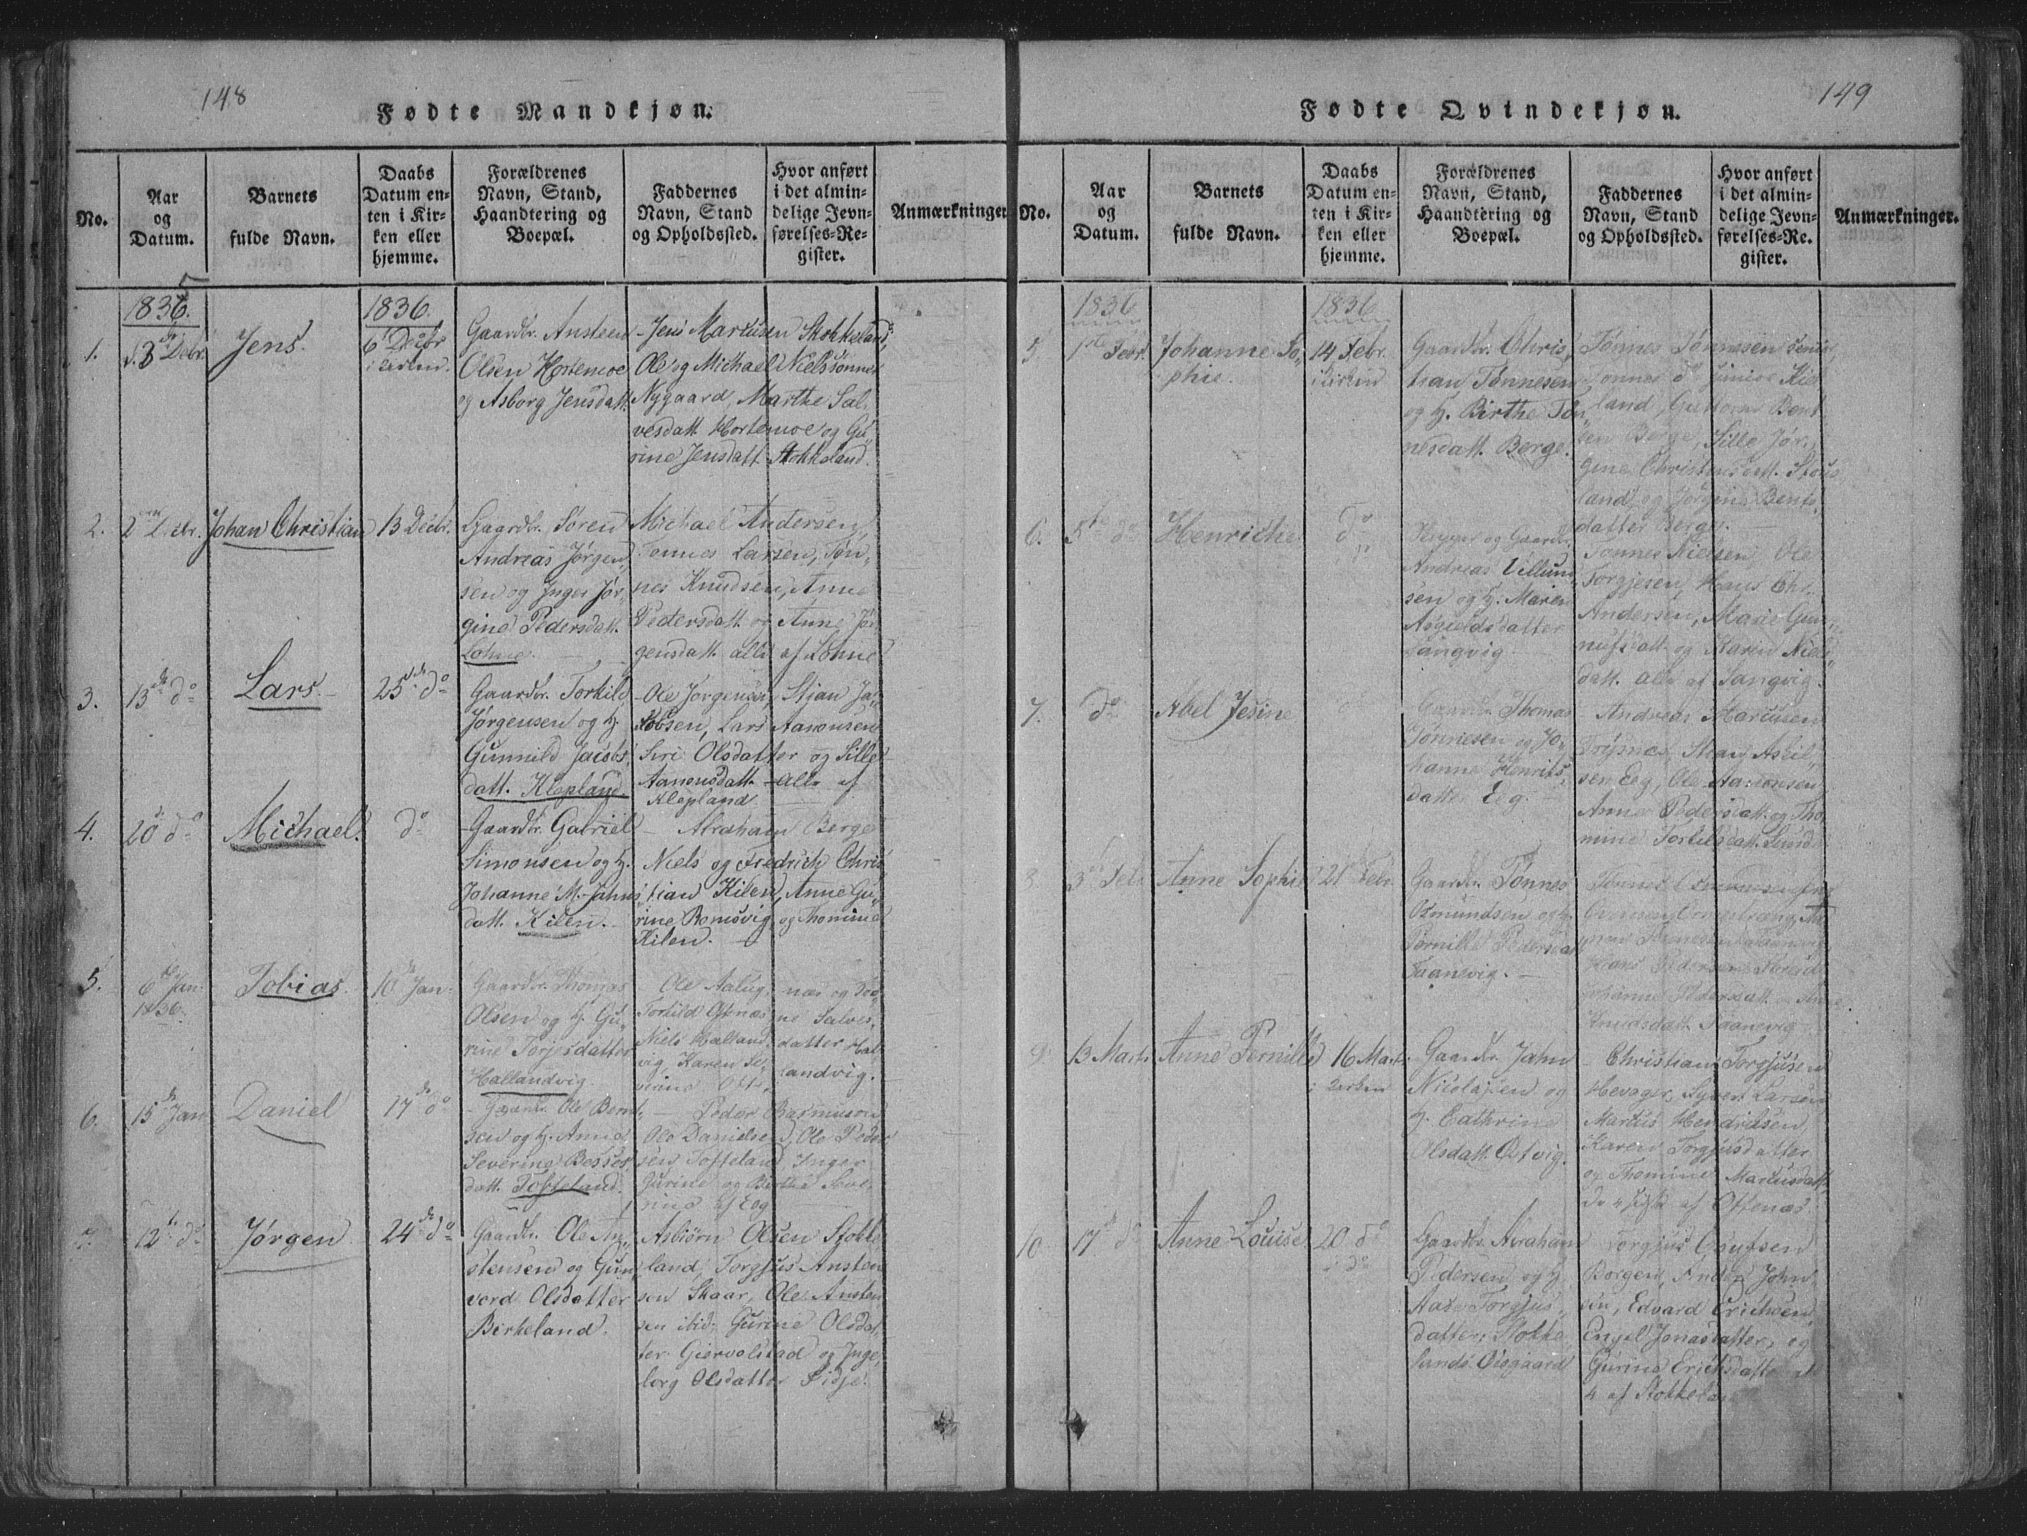 148
Fødte Mandkjøn.
No.
Aar
og
Datum.
Barnets
fulde Navn.
Daabs
Datum en-
ten i Kir-
ken eller
hjemme.
Forældrenes
Navn, Stand,
Haandtering og
Boepæl.
Faddernes
Navn, Stand
og Opholdssted.
Hvor anført
i det almin-
delige Jevn-
førelses-Re-
gister.
Anmærkninger
1836.
5
1836
1.
Debr.
Jens.
6 Decbr
i Kirken.
Gaardbr. Ansteen
Olsen Hortemoe
og Asborg Jensdatt.
Jens Marcusen Stokkeland,
Ole og Michael Nielssønner
Nygaard, Marthe Sal-
vesdatt. Hortemoe og Gu-
rine Jensdatt. Stokkeland.
2.
2den Debr.
Johan Christian
13 Decbr.
Gaardbr. Søren
Andreas Jørgen-
sen og Inger Jør-
gine Pedersdatt.
Lohne.
Michael Andersen,
Tønnes Larsen, Tøn-
nes Knudsen, Anne
Pedersdatt. og Anne Jør-
gensdatt. alle af Lohne
3.
13de do
Lars.
25de do
Gaardbr. Torkild
Jørgensen og H.
Gunnild Jacobs-
datt. Klepland.
Ole Jørgensen, Stian Ja-
kobsen, Lars Aanonsen
Siri Olsdatter og Sille
Aanonsdatt. - alle af
Klepland.
4.
20de do
Michael.
do
Gaardbr. Gabriel
Simonsen og H.
Johanne M. Jahns-
datt. Kilen.
Abraham Berge
Niels og Fredrich Chris-
tian Kilen, Anne Gu-
rine Romsvig og Thomine
Kilen.
5.
6te Jan
1836.
Tobias.
10de Jan.
Gaardbr. Thomas
Olsen og H. Gu-
rine Torjesdatter
Hallandvig.
Ole Aalug
Torkild Oftenæs
Niels Halland-
vig, Karen Se-
verine
næs og
ne Salves-
datter Hal-
landvig.
6.
15de Jan
Daniel
17de do
Gaardbr. Ole Bernt-
sen og H. Anne
Severine Besses-
datt. Tofteland.
Peder Rasmusen
Ole Danielsen, Ole Peder-
sen Tofteland, Inger
Gurine og Birthe Seve-
rine af Eeg
7.
12te do
Jørgen
24de do
Gaardbr. Ole An-
stensen og Gun-
vord Olsdatter
Birkeland.
Asbiørn Olsen Stokke-
land, Torgjus Ansten-
sen Skaar, Ole Ansten-
sen ibid, Gurine Olsdat-
ter Giervolstad og Inge-
borg Olsdatter Lidje.
149
Fødte Qvindekjøn.
No.
Aar
og
Datum.
Barnets
fulde Navn.
Daabs
Datum en-
ten i Kir-
ken eller
hjemme.
Forældrenes
Navn, Stand,
Haandtering og
Boepæl.
Faddernes
Navn, Stand
og Opholdssted.
Hvor anført
i det almin-
delige Jevn-
førelses-Re-
gister.
Anmærkninger.
1836
1836
5.
1ste Febr.
Johanne So-
phie.
14 Febr.
i Kirken
Gaardbr. Chris-
tian Tønnesen
og H. Birthe Tøn-
nesdatt. Berge.
Tønnes Tønnesen senior
Tønnes do junior Kie-
land, Gustav Bent-
sen Berge, Sille Jør-
gine Christensdatt. Stous-
land og Jørgine Bents-
datter Berge.
6.
5te do
Henriche
do
og Gaardbr.
Andreas Villum-
sen og H. Maren
Asgieldsdatter
Langvig.
Tønnes Nielsen, Ole
Torgjesen, Hans Chr.
Andersen, Marie Gun-
nufsdatt og Karen Niels-
datt. Alle af Langvig.
7.
do
Abel Jesine
Gaardbr. Thomas
Tønnesen og Jo-
hanne Henriks-
datter Eeg.
Andreas Marcusen
Drysnes, Stian Askil-
sen Eeg, Ole Aanonsen
Anne Pedersdatt. og Tho-
mine Torkilsdatt.
8.
3de Febr
Anne Sophie
21 Febr.
Gaardbr. Tønnes
Osmundsen og H.
Pernille Pedersdatt
Faanevig.
Hans Pedersen
Johanne Pedersdatt. og Anne
Knudsdatt. Faanevig.
9.
13 Marts
Anne Pernille
16 Mart.
i Kirken
Gaardbr. Jahn
Nicolajsen og
H. Cathrine
Olsdatt. Østvig.
Christian Torgjusen
Hevager, Syvert Larsen
Marcus Hendriksen,
Karen Torgjusdatter
og Thomine Marcusdatt.
af Oftenæs.
10.
17de do
Anne Louise.
20 do
i do
Gaardbr. Abraham
Pedersen og H.
Aase Torgjus-
datter, Stokke-
lands Øisgaard
Torgjus Gnufsen
Borgen, Anders John-
sen, Edvard Erichsen
Engel Jonasdatter, og
Gurine Ericksdatter
4 af Stokkeland